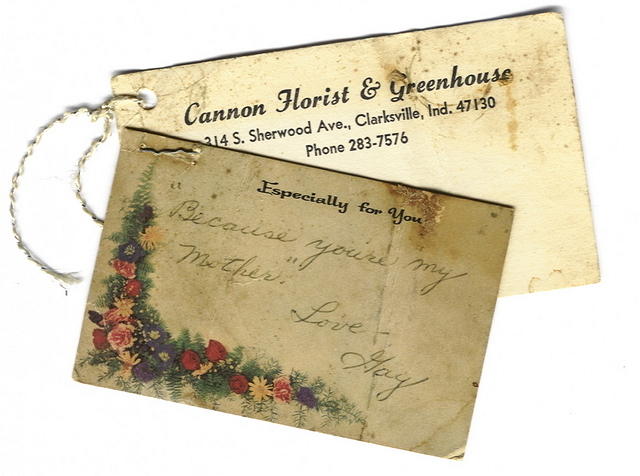 Cannon Florist & Greenhouse
314 S. Sherwood Ave., Clarksville, Ind. 47130
Phone 283-7576
Especially for You
"Because you're my
Mother."
Love -
Gay